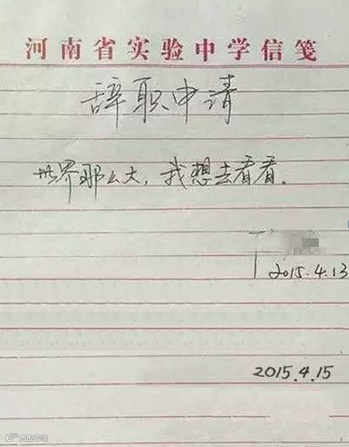 河南省实验中学信笺
辞职申请
世界那么大，我想去看看.
2015.4.13
2015.4.15